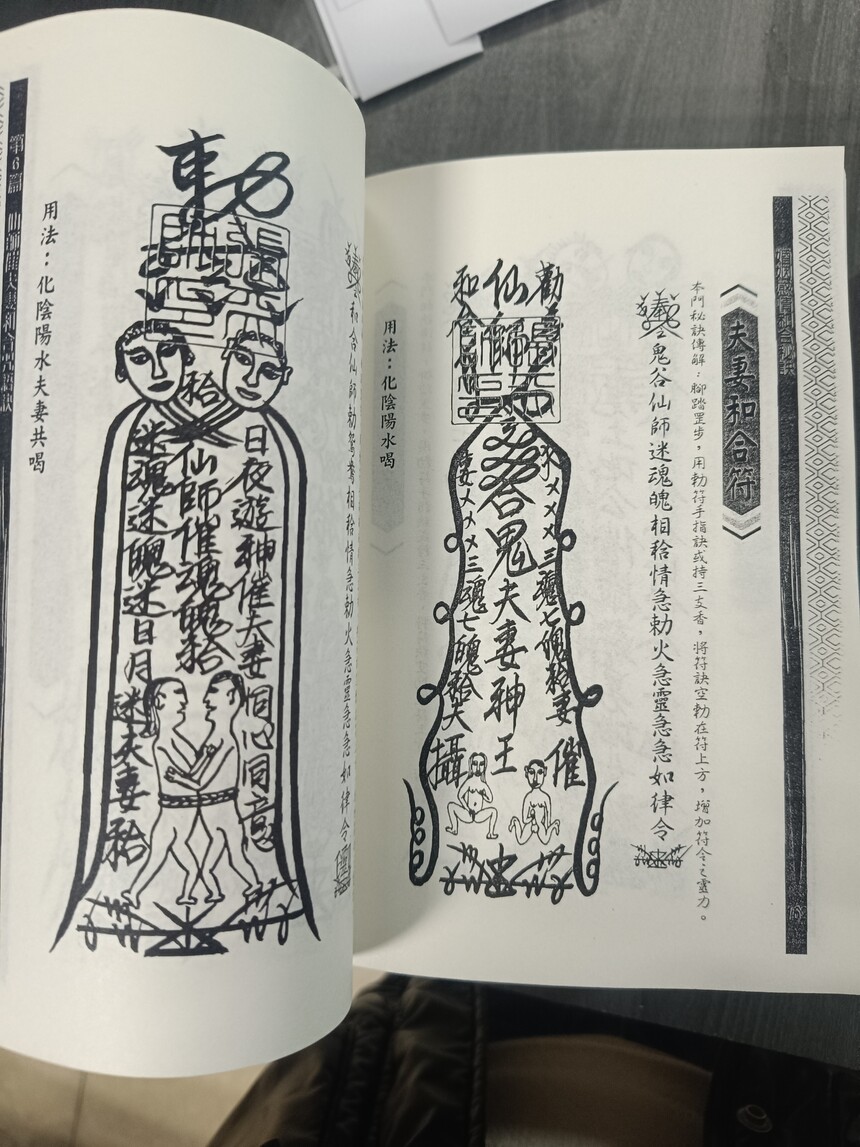 夫妻和合符
本門秘訣傳解：腳踏罡步，用勅符手指訣或持三支香，將符訣空勅在符上方，增加符令之靈力。
鬼谷仙師迷魂魄相秴情急勅火急靈急急如律令
勸
仙師
和合
谷鬼夫妻神王
三魂七魄秴妻
催
妻㐅㐅㐅三魂七魄秴夫
攝
用法：化陰陽水喝
和合仙師勅鴛鴦相秴情急勅火急靈急急如律令
勅
秴
日夜遊神催夫妻同心同意
仙師催魂魄秴
迷魂迷魄迷日月迷夫妻秴
用法：化陰陽水夫妻共喝
第6篇 仙師催夫妻和合咒語訣